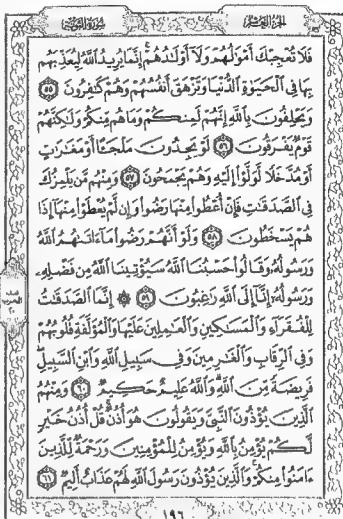 الجزء العاشر سورة التوبة
فَلَا تُعْجِبْكَ أَمْوَٰلُهُمْ وَلَآ أَوْلَٰدُهُمْ ۚ إِنَّمَا يُرِيدُ ٱللَّهُ لِيُعَذِّبَهُم
بِهَا فِى ٱلْحَيَوٰةِ ٱلدُّنْيَا وَتَزْهَقَ أَنفُسُهُمْ وَهُمْ كَٰفِرُونَ ٥٥
وَيَحْلِفُونَ بِٱللَّهِ إِنَّهُمْ لَمِنكُمْ وَمَا هُم مِّنكُمْ وَلَٰكِنَّهُمْ
قَوْمٌ يَفْرَقُونَ ٥٦ لَوْ يَجِدُونَ مَلْجَـًٔا أَوْ مَغَٰرَٰتٍ
أَوْ مُدَّخَلًا لَّوَلَّوْا۟ إِلَيْهِ وَهُمْ يَجْمَحُونَ ٥٧ وَمِنْهُم مَّن يَلْمِزُكَ
فِى ٱلصَّدَقَٰتِ فَإِنْ أُعْطُوا۟ مِنْهَا رَضُوا۟ وَإِن لَّمْ يُعْطَوْا۟ مِنْهَآ إِذَا
هُمْ يَسْخَطُونَ ٥٨ وَلَوْ أَنَّهُمْ رَضُوا۟ مَآ ءَاتَىٰهُمُ ٱللَّهُ
وَرَسُولُهُۥ وَقَالُوا۟ حَسْبُنَا ٱللَّهُ سَيُؤْتِينَا ٱللَّهُ مِن فَضْلِهِۦ
وَرَسُولُهُۥٓ إِنَّآ إِلَى ٱللَّهِ رَٰغِبُونَ ٥٩ ۞ إِنَّمَا ٱلصَّدَقَٰتُ
لِلْفُقَرَآءِ وَٱلْمَسَٰكِينِ وَٱلْعَٰمِلِينَ عَلَيْهَا وَٱلْمُؤَلَّفَةِ قُلُوبُهُمْ
وَفِى ٱلرِّقَابِ وَٱلْغَٰرِمِينَ وَفِى سَبِيلِ ٱللَّهِ وَٱبْنِ ٱلسَّبِيلِ ۖ
فَرِيضَةً مِّنَ ٱللَّهِ ۗ وَٱللَّهُ عَلِيمٌ حَكِيمٌ ٦٠ وَمِنْهُمُ
ٱلَّذِينَ يُؤْذُونَ ٱلنَّبِىَّ وَيَقُولُونَ هُوَ أُذُنٌ ۚ قُلْ أُذُنُ خَيْرٍ
لَّكُمْ يُؤْمِنُ بِٱللَّهِ وَيُؤْمِنُ لِلْمُؤْمِنِينَ وَرَحْمَةٌ لِّلَّذِينَ
ءَامَنُوا۟ مِنكُمْ ۚ وَٱلَّذِينَ يُؤْذُونَ رَسُولَ ٱللَّهِ لَهُمْ عَذَابٌ أَلِيمٌ ٦١
١٩٦